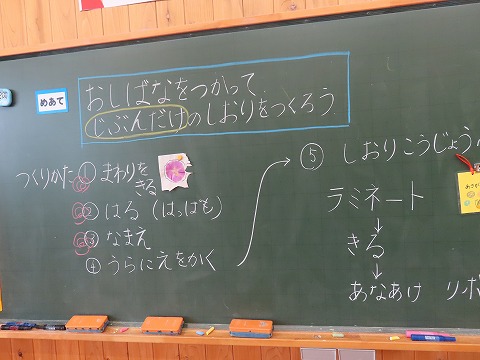 めあて
おしばなをつかって
じぶんだけのしおりをつくろう
つくりかた ① まわりを
きる
② はる（はっぱも）
③ なまえ
④ うらにえをかく
⑤ しおりこうじょう
ラミネート
↓
きる
↓
あなあけ リボ
あさが